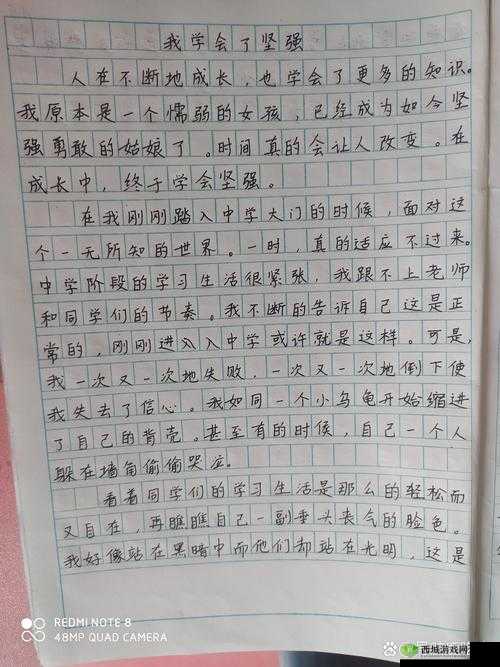 我学会了坚强
人在不断地成长，也学会了更多的知识。
我原本是一个懦弱的女孩，已经成为如今坚
强勇敢的姑娘了。时间真的会让人改变。在
成长中，终于学会坚强。
在我刚刚踏入中学大门的时候，面对这
个一无所知的世界。一时，真的适应不过来。
中学阶段的学习生活很紧张，我跟不上老师
和同学们的节奏。我不断的告诉自己这是正
常的，刚刚进入入中学或许就是这样。可是，
我一次又一次地失败，一次又一次地倒下使
我失去了信心。我如同一个小乌龟开始缩进
了自己的背壳。甚至有的时候，自己一个人
躲在墙角偷偷哭泣。
看着同学们的学习生活是那么的轻松而
又自在，再瞧瞧自己一副垂头丧气的脸色。
我好像站在黑暗中而他们却站在光明，这是
REDMI NOTE 8
48MP QUAD CAMERA
西城游戏网